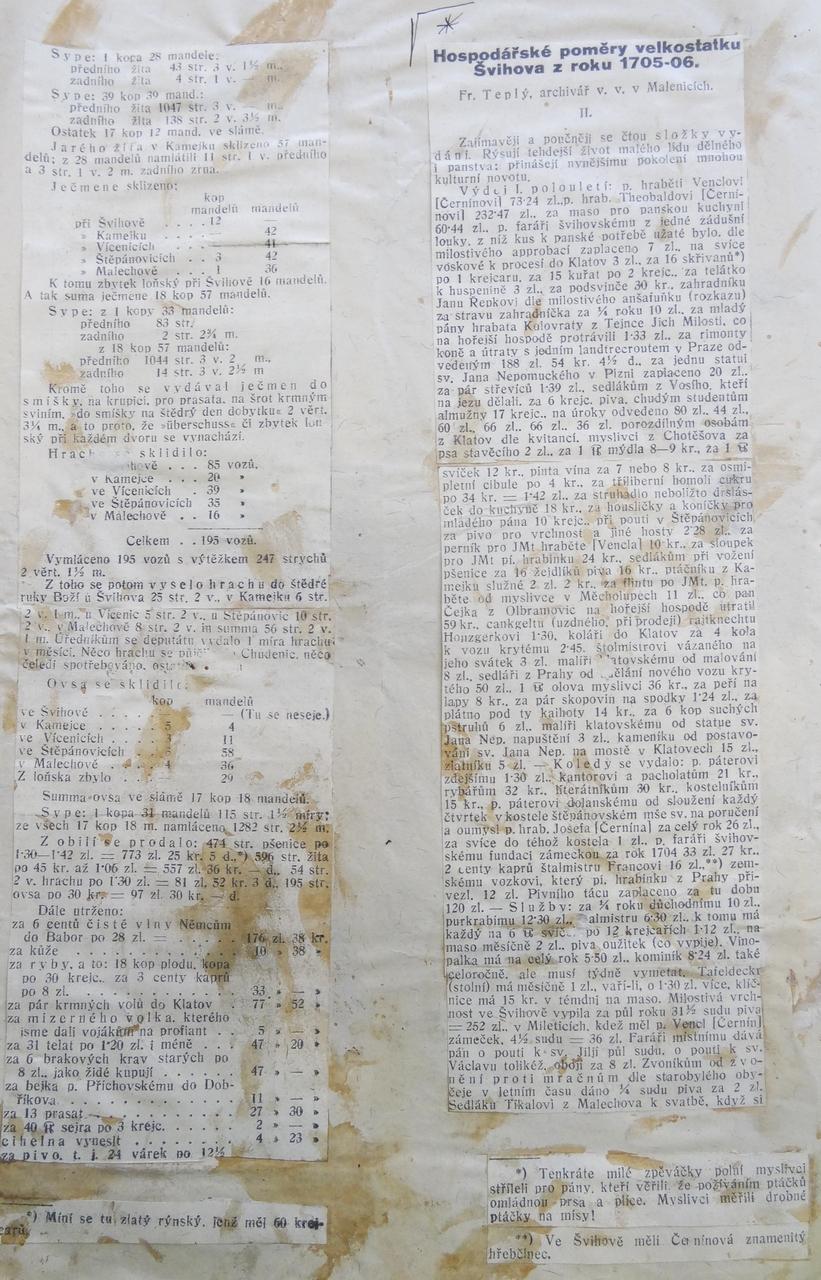 Sype: 1 kopa 28 mandele:
předního žita 43 str. 3 v. 1½ m.,
zadního 4 str. 1 v. — m.
Sype: 39 kop 39 mand.:
předního žita 1047 str. 3 v. — m.,
zadního 138 str. 2 v. 3½ m.
Ostatek 17 kop 12 mand. ve slámě.
Jarého žita v Kamejku sklizeno 57 man-
delů; z 28 mandelů namlátili 11 str. 1 v. předního
a 3 str. 1 v. 2 m. zadního zrna.
Ječmene sklizeno:
kop
mandelů mandelů
při Švihově . . . . 12
» Kamejku . . . — 42
» Vícenicích . . . — 41
» Štěpánovicích . 3 42
» Malechově . . . 1 36
K tomu zbytek loňský při Švihově 16 mandelů.
A tak suma ječmene 18 kop 57 mandelů.
Sype: z 1 kopy 33 mandelů:
předního 83 str.
zadního 2 str. 2¾ m.
z 18 kop 57 mandelů:
předního 1044 str. 3 v. 2 m.,
zadního 14 str. 3 v. 2½ m
Kromě toho se vydával ječmen do
smíšky, na krupici, pro prasata, na šrot krmným
sviním, »do smíšky na štědrý den dobytku« 2 věrt.
3¼ m., a to proto, že »überschuss« či zbytek loň
ský při každém dvoru se vynachází.
Hrach sklidilo:
hově . . . 85 vozů.
v Kamejce . . . 20 »
ve Vícenicích . 39 »
ve Štěpánovicích 35 »
v Malechově . . 16 »
Celkem . . 195 vozů.
Vymláceno 195 vozů s výtěžkem 247 strychů
2 věrt. 1½ m.
Z toho se potom vyselo hrachu do štědré
ruky Boží u Švihova 25 str. 2 v., v Kamejku 6 str.
2 v. 1 m., u Vícenic 5 str. 2 v., u Štěpánovic 10 str.
2 v., v Malechově 8 str. 2 v. in summa 56 str. 2 v.
1 m. Úředníkům se deputátu vydalo 1 míra hrachu
v měsíci. Něco hrachu se Chudenic, něco
čeledí spotřebováno,
Ovsa se sklidilo:
kop mandelů
ve Švihově . . . . . — — (Tu se neseje.)
v Kamejce . . . . . 5 4
ve Vícenicích . . . . 3 11
ve Štěpánovicích . . . 58
v Malechově . . . . 4 36
Z loňska zbylo . . . — 29
Summa ovsa ve slámě 17 kop 18 mandelů.
Sype: 1 kopa 31 mandelů 115 str. 1½ míry;
ze všech 17 kop 18 m. namláceno 1282 str. 2½ m.
Z obilí se prodalo: 474 str. pšenice po
1·30—1·42 zl. = 773 zl. 25 kr. 5 d.,*) 596 str. žita
po 45 kr. až 1·06 zl. = 557 zl. 36 kr. — d., 54 str.
2 v. hrachu po 1·30 zl. = 81 zl. 52 kr. 3 d., 195 str.
ovsa po 30 kr. = 97 zl. 30 kr. — d.
Dále utrženo:
za 6 centů čisté vlny Němcům
do Babor po 28 zl. = . . . . . 176 zl. 38 kr.
za kůže . . . . . . . . . . . 10 » 38 »
za ryby, a to: 18 kop plodu, kopa
po 30 krejc., za 3 centy kaprů
po 8 zl. . . . . . . . . . . 33 » — »
za pár krmných volů do Klatov . 77 » 52 »
za mizerného volka, kterého
jsme dali vojákům na profiant . 5 » — »
za 31 telat po 1·20 zl. i méně . . . 47 » 20 »
za 6 brakových krav starých po
8 zl., jako židé kupují . . . . 47 » — »
za bejka p. Příchovskému do Dob-
říkova . . . . . . . . . . . 11 » — »
za 13 prasat . . . . . . . . . 27 » 30 »
za 40 ℔ sejra po 3 krejc. . . . . . 2 » — »
cihelna vynesla . . . . . . . . 4 » 23 »
za pivo, t. j. 24 várek po 12½
*) Míní se tu zlatý rýnský, jenž měl 60 krej-
carů.
*
Hospodářské poměry velkostatku
Švihova z roku 1705-06.
Fr. Teplý, archivář v. v. v Malenicích.
II.
Zajímavěji a poučněji se čtou složky vy-
dání. Rýsují tehdejší život malého lidu dělného
i panstva; přinášejí nynějšímu pokolení mnohou
kulturní novotu.
Výdej I. polouletí: p. hraběti Venclovi
[Černínovi] 73·24 zl., p. hrab. Theobaldovi [Černí-
novi] 232·47 zl., za maso pro panskou kuchyni
60·44 zl., p. faráři švihovskému z jedné zádušní
louky, z níž kus k panské potřebě užaté bylo, dle
milostivého approbací zaplaceno 7 zl., na svíce
voskové k procesí do Klatov 3 zl., za 16 skřivanů*)
po 1 krejcaru, za 15 kuřat po 2 krejc., za telátko
k huspenině 3 zl., za podsvinče 30 kr., zahradníku
Janu Řepkovi dle milostivého anšafuňku (rozkazu)
za stravu zahradníčka za ¼ roku 10 zl., za mladý
pány hrabata Kolovraty z Tejnce Jich Milosti, co
na hořejší hospodě protrávili 1·33 zl., za rimonty
koně a útraty s jedním landtrecroutem v Praze od-
vedeným 188 zl. 54 kr. 4½ d., za jednu statui
sv. Jana Nepomuckého v Plzni zaplaceno 20 zl.,
za pár střevíců 1·39 zl., sedlákům z Vosího, kteří
na jezu dělali, za 6 krejc. piva, chudým studentům
almužny 17 krejc., na úroky odvedeno 80 zl., 44 zl.,
60 zl., 66 zl., 66 zl., 36 zl. porozdílným osobám
z Klatov dle kvitancí, myslivci z Chotěšova za
psa stavěcího 2 zl., za 1 ℔ mýdla 8—9 kr., za 1 ℔
svíček 12 kr., pinta vína za 7 nebo 8 kr., za osmi-
pletní cibule po 4 kr., za tříliberní homoli cukru
po 34 kr. = 1·42 zl., za struhadlo neboližto dršlás-
ček do kuchyně 18 kr., za housličky a koníčky pro
mladého pána 10 krejc., při pouti v Štěpánovicích
za pivo pro vrchnost a jiné hosty 2·28 zl., za
perník pro JMt hraběte [Vencla] 10 kr., za sloupek
pro JMt pí. hrabinku 24 kr., sedlákům při vožení
pšenice za 16 žejdlíků piva 16 kr., ptáčníku z Ka-
mejku služné 2 zl. 2 kr., za flintu po JMt. p. hra-
běte od myslivce v Měcholupech 11 zl., co pan
Čejka z Olbramovic na hořejší hospodě utratil
59 kr., cankgeltu (uzdného, při prodeji) rajtknechtu
Honzgerkovi 1·30, koláři do Klatov za 4 kola
k vozu krytému 2·45, štolmistrovi vázaného na
jeho svátek 3 zl., malíři klatovskému od malování
8 zl., sedláři z Prahy od dělání nového vozu kry-
tého 50 zl., 1 ℔ olova myslivci 36 kr., za peří na
lapy 8 kr., za pár skopovin na spodky 1·24 zl., za
plátno pod ty kalhoty 14 kr., za 6 kop suchých
pstruhů 6 zl., malíři klatovskému od statue sv.
Jana Nep. napuštění 3 zl., kameníku od postavo-
vání sv. Jana Nep. na mostě v Klatovech 15 zl.,
zlatníku 5 zl. — Koledy se vydalo: p. páterovi
zdejšímu 1·30 zl., kantorovi a pacholatům 21 kr.,
rybářům 32 kr., literátníkům 30 kr., kostelníkům
15 kr., p. páterovi dolanskému od sloužení každý
čtvrtek v kostele štěpánovském mše sv. na poručení
a oumysl p. hrab. Josefa [Černína] za celý rok 26 zl.,
za svíce do téhož kostela 1 zl., p. faráři švihov-
skému fundací zámeckou za rok 1704 33 zl. 27 kr.,
2 centy kaprů štalmistru Francovi 16 zl.,**) zem-
skému vozkovi, který pí. hrabinku z Prahy při-
vezl, 12 zl. Pivního tácu zaplaceno za tu dobu
120 zl. — Služby: za ¼ roku důchodnímu 10 zl.,
purkrabímu 12·30 zl., štalmistru 6·30 zl., k tomu má
každý na 6 ℔ svíč. po 12 krejcařích 1·12 zl., na
maso měsíčně 2 zl., piva oužitek (co vypije). Vino-
palka má na celý rok 5·50 zl., kominík 8·24 zl. také
celoročně, ale musí týdně vymetat. Tafeldeckr
(stolní) má měsíčně 1 zl., vaří-li, o 1·30 zl. více, klíč-
nice má 15 kr. v témdni na maso. Milostivá vrch-
nost ve Švihově vypila za půl roku 31½ sudu piva
= 252 zl., v Mileticích, kdež měl p. Vencl [Černín]
zámeček, 4½ sudu = 36 zl. Faráři místnímu dává
pán o pouti k sv. Jiljí půl sudu, o pouti k sv.
Václavu tolikéž, obojí za 8 zl. Zvoníkům od zvo-
nění proti mračnům dle starobylého oby-
čeje v letním času dáno ¼ sudu piva za 2 zl.
Sedláku Tikalovi z Malechova k svatbě, když si
*) Tenkráte milé zpěváčky polní myslivci
stříleli pro pány, kteří věřili, že požíváním ptáčků
omládnou prsa a plíce. Myslivci měřili drobné
ptáčky na mísy!
**) Ve Švihově měli Černínová znamenitý
hřebčinec.